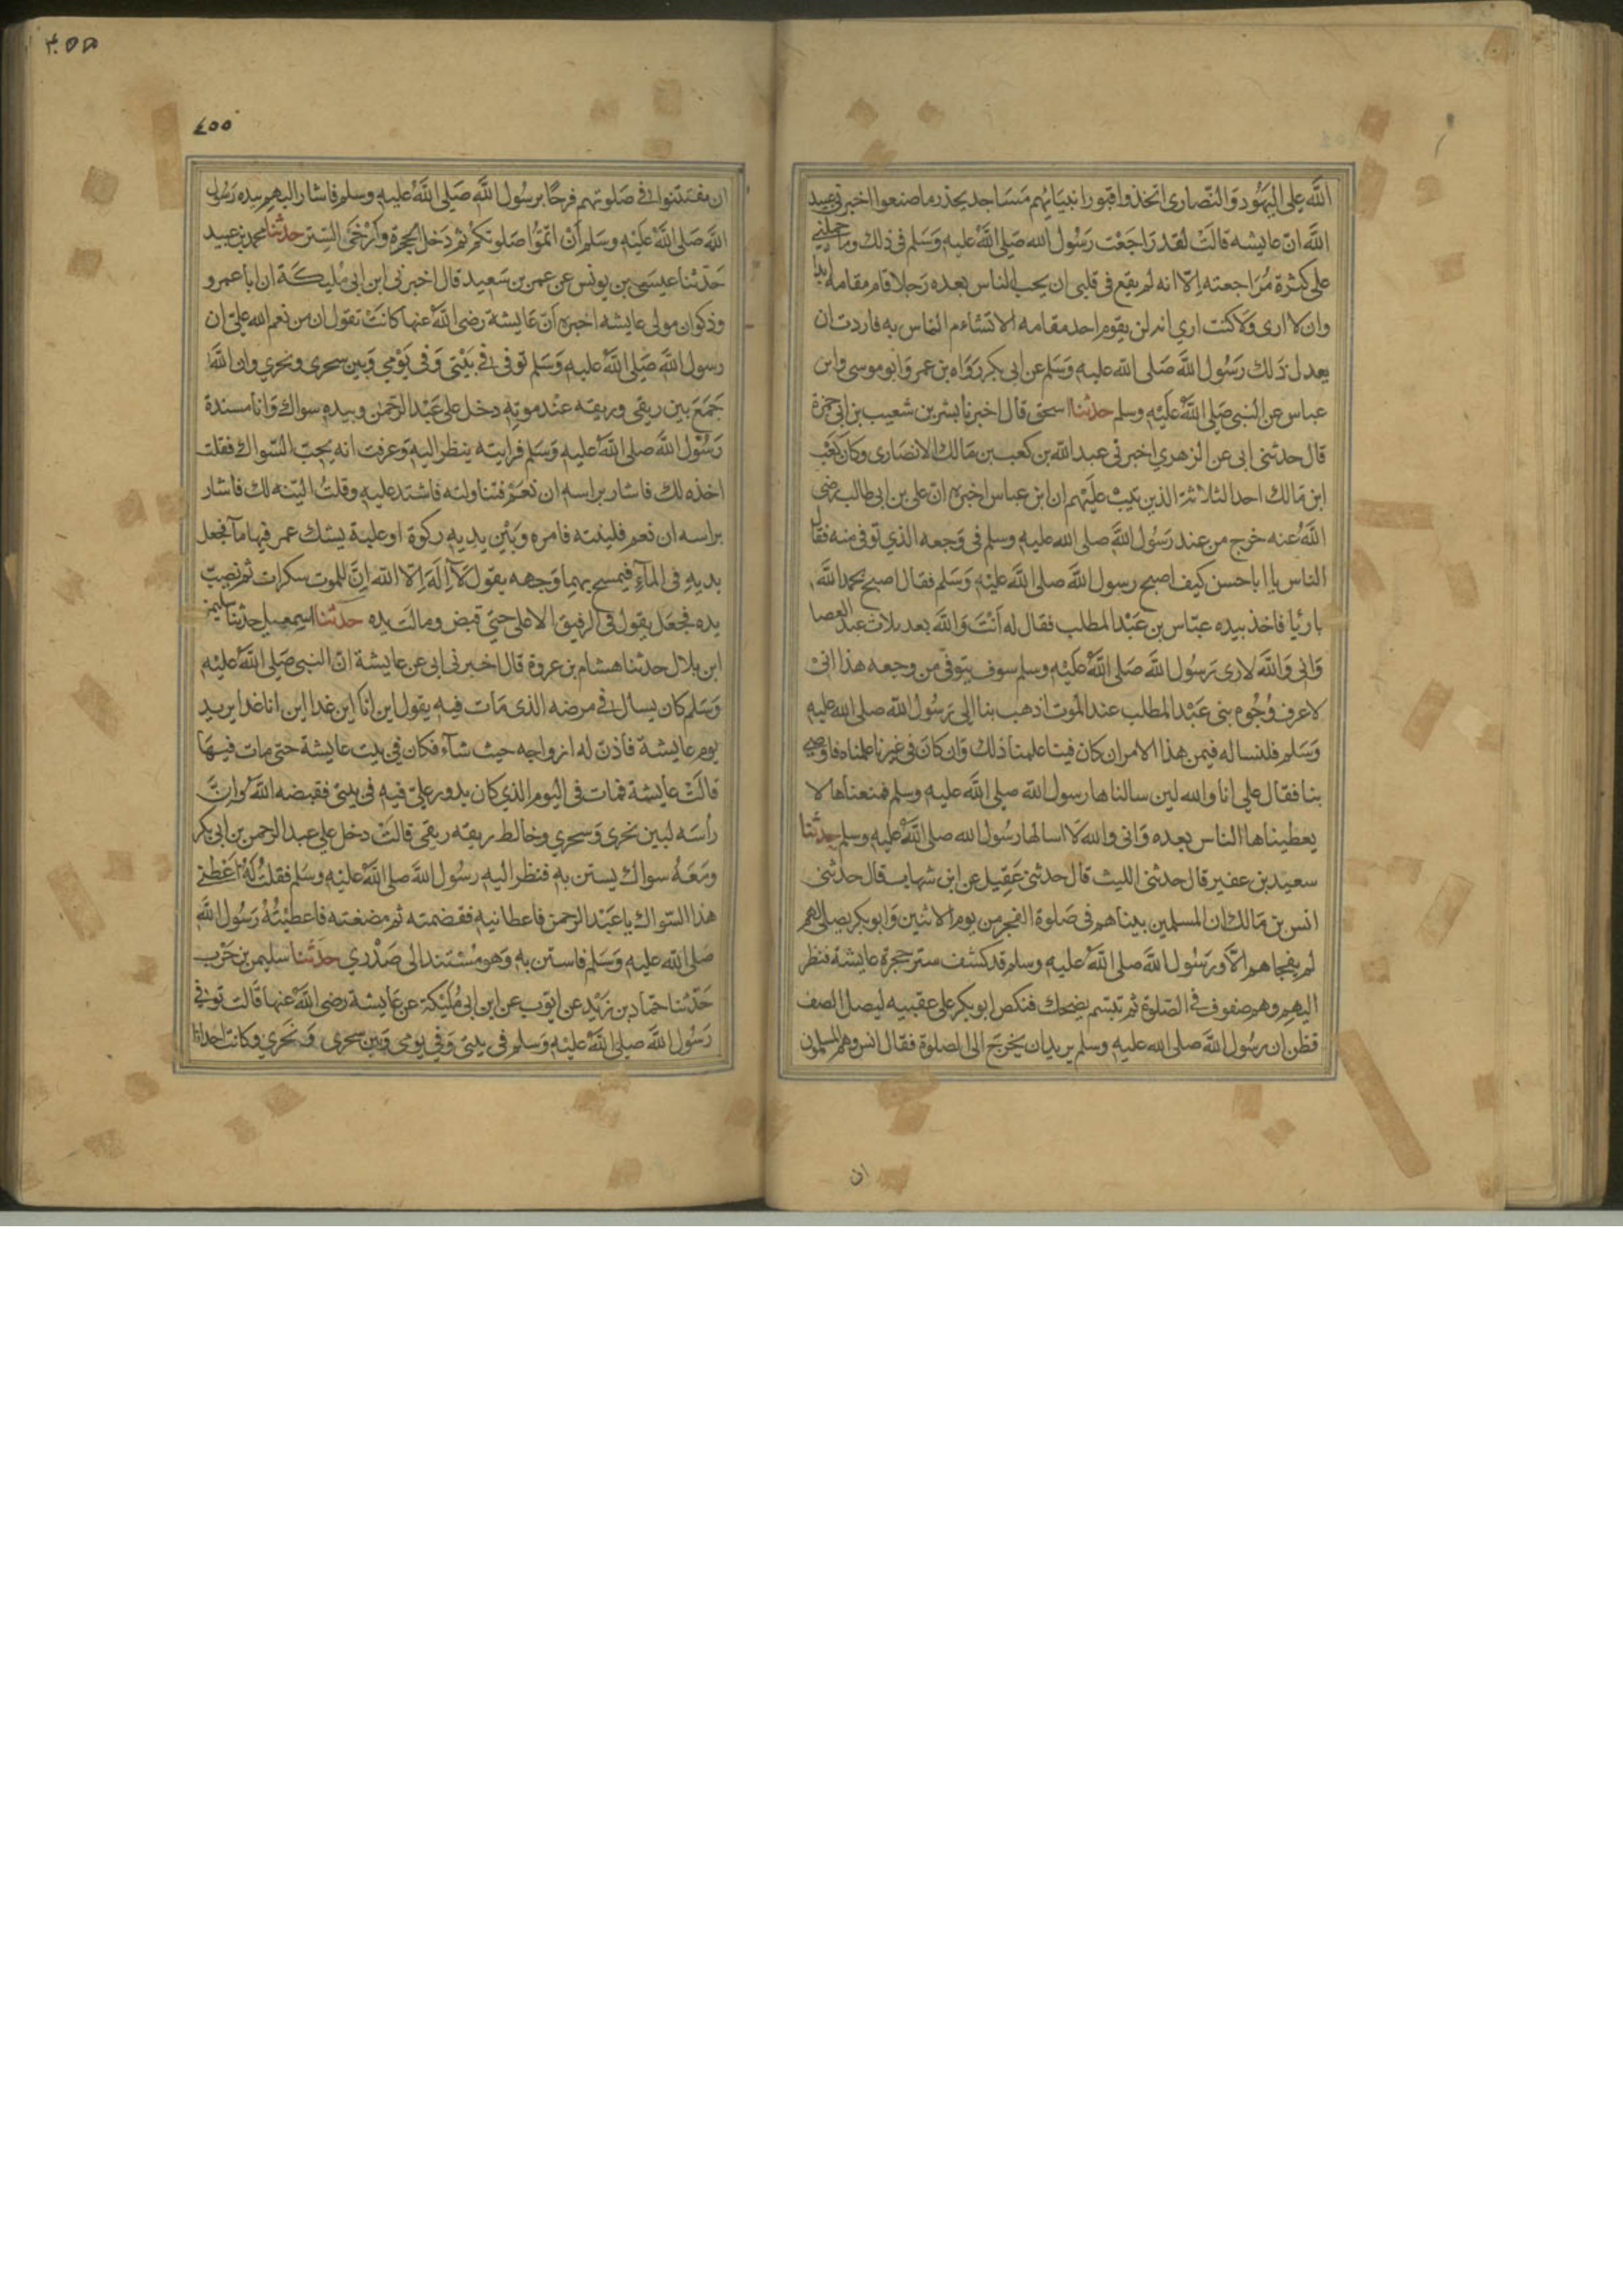 الله على اليَهُود وَالنّصارى اتخذوا قبور انبيَائهم مَسَاجد يحذر ما صنعوا اخبرنى عبيد
الله انّ عايشه قالَتْ لقد رَاجَعْت رَسُول الله صَلى الله عليه وَسَلم فى ذلك وما حملنى
على كثرة مُرَاجعته اِلّا انه لم يقع فى قلبى ان يحب الناس بعده رَجلا قام مقامه ابدا
وان لا ارى وَلا كنت ارى انه لن يقوم احد مقامه الا تشاءم الناس به فاردت ان
يعدل ذلك رَسُول الله صَلى الله عليه وَسَلم عن ابى بكر رَوَاه بن عمر وَابو موسى وابن
عباس عن النبى صَلى الله عَليْه وسلم حدثنا اسحق قال اخبرنا بشر بن شعيب بن ابى حمزة
قال حدثنى ابى عن الزهري اخبرنى عبد الله بن كعب بن مَالك الانصَارى وكان كعْب
ابن مَالك احد الثلاثة الذين تيبَ عليْهم ان ابن عباس اخبره انّ على بن ابى طالب رضى
الله عنه خرج من عند رَسُول الله صلى الله عليه وسلم فى وَجعه الذي توفى منه فقال
الناس يا ابا حسن كيف اصبح رسول الله صلى الله عليْه وَسَلم فقال اصبح بحمد الله
بارئا فاخذ بيده عبّاس بن عَبْد المطلب فقال له اَنْتَ وَالله بعد ثلاث عبد العصا
وَانى وَالله لارى رَسُول الله صَلى الله عَليْه وسلم سوف يتوفى من وجعه هذا انى
لاعرف وُجُوه بنى عَبْد المطلب عند الموت اذهب بنا الى رَسُول الله صلى الله عليه
وَسَلم فلنساله فيمن هذا الامر ان كان فينا علمنا ذلك وَان كانَ فى غيرنا علمناه فاوصى
بنا فقال على انا والله لين سالناها رسول الله صلى الله عليه وسلم فمنعناها لا
يعطيناها الناس بعده وَانى والله لَا اسالها رسُول الله صلى الله عليه وسلم حدثنا
سعيد بن عفير قال حدثنى الليث قال حدثنى عَقيل عن ابن شهاب قال حدثنى
انس بن مَالك ان المسلمين بيناهم فى صَلوة الفجر من يوم الاثنين وَابو بكر يصلى لهم
لم يفجاهم الّا ورَسُول الله صلى الله عليه وسلم قد كشف ستر حجرة عايشة فنظر
اليهم وهم صفوف فى الصّلوة ثم تبتسم يضحك فنكص ابو بكر على عقبيه ليصل الصف
فظن ان رسُول الله صلى الله عليه وسلم يريد ان يَخرج الى الصلوة فقال انس وهم المسلمون
ان
٤٥٥
ان يفتتنوا فى صَلوتهم فرحًا برسُول الله صَلى الله عليه وسلم فاشار اليهم بيده رَسُول
الله صَلى الله عَليْه وسَلم اَنْ اتمّوُا صَلوتكمْ ثم دَخل الحجرة وَاَرْخَى السّتر حدثنا محمد بن عبيد
حَدثنا عيسَى بن يونس عن عمر بن سَعِيد قال اخبرنى ابن ابى مُليكَة ان ابا عمرو
وذكوان مولى عايشه اخبره انّ عَايشة رضى الله عنها كانَتْ تقول ان من نعم الله علىّ ان
رسول الله صَلى الله عليه وَسَلم توفى فى بَيْتى وَفى يَوْمي وَبين سحرى ونحري وان الله
جَمَعَ بين ريقى وريقه عنْد موته دخل على عَبْد الرّحمن وبيده سواك وَانا مسندة
رَسُول الله صلى الله عليه وَسَلم فرايته ينظر اليه وَعرفت انه يحبّ السّواك فقلت
اخذه لك فاشار براسه ان نعَمْ فتناولته فاشتد عليه وقلتُ اليّنه لك فاشار
براسه ان نعم فلينته فامره وَبَيْن يديه ركوة او علبة يشك عمر فيها مآ فجعل
يديه فى المآءِ فيمسح بهما وَجهه يقول لَآ اِلهَ اِلا الله اِنّ للموت سكرات ثم نصبَ
يده فجعَل يقول فى الرفيق الاعلى حتى قبض ومالَت يده حدثنا اسمعيل حدثنا سليمن
ابن بلال حدثنا هشام بن عروة قال اخبرنى ابى عن عايشة انّ النبى صَلى الله عليْه
وَسَلم كان يسال فى مرضه الذى مَات فيه يقول اين انَا غدا اين انا غدا يريد
يوم عايشة فاذن له ازواجه حيث شآء فكان فى بيت عايشة حتى مات فيهَا
قالَتْ عايشة فمات فى اليوم الذي كان يدور علىّ فيه فى بيتى فقبضه الله وَانّ
رأسَه لبين نحرى وَسحري وخالط ريقه ريقى قالتْ دخل على عبد الرحمن بن ابى بكر
ومَعَهُ سواك يستن به فنظر اليه رسُول الله صلى الله عليْه وسَلم فقلتُ لهُ اَعْطنى
هذا السّواك يا عَبْد الرحمن فاعطانيه فقضمته ثم مضغته فاعطَيْتُهُ رَسُول الله
صَلى الله عليه وَسَلم فاستن به وَهو مُسْتَند الى صَدْري حَدثنا سليمن بن حَرْب
حَدّثنا حمّاد بن زَيْد عن ايّوب عن ابن ابى مُلَيْكة عن عَايشة رضى الله عنها قَالت توفى
رَسُول الله صلى الله عليْه وَسلم فى بيتى وَفى يومى وَبين سحرى وَنَحري وكانت احدانا